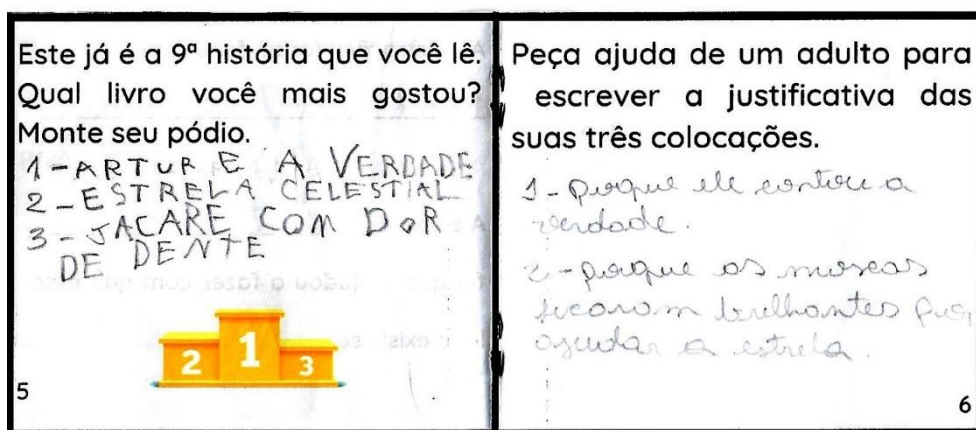 Este já é a 9ª história que você lê.
Qual livro você mais gostou?
Monte seu pódio.
1-ARTUR E A VERDADE
2-ESTRELA CELESTIAL
3-JACARE COM DOR
DE DENTE
2 1 3
5
Peça ajuda de um adulto para
escrever a justificativa das
suas três colocações.
1- porque ele contou a
verdade.
2-porque as moscas
ficaram brilhantes por
ajudar a estrela.
6